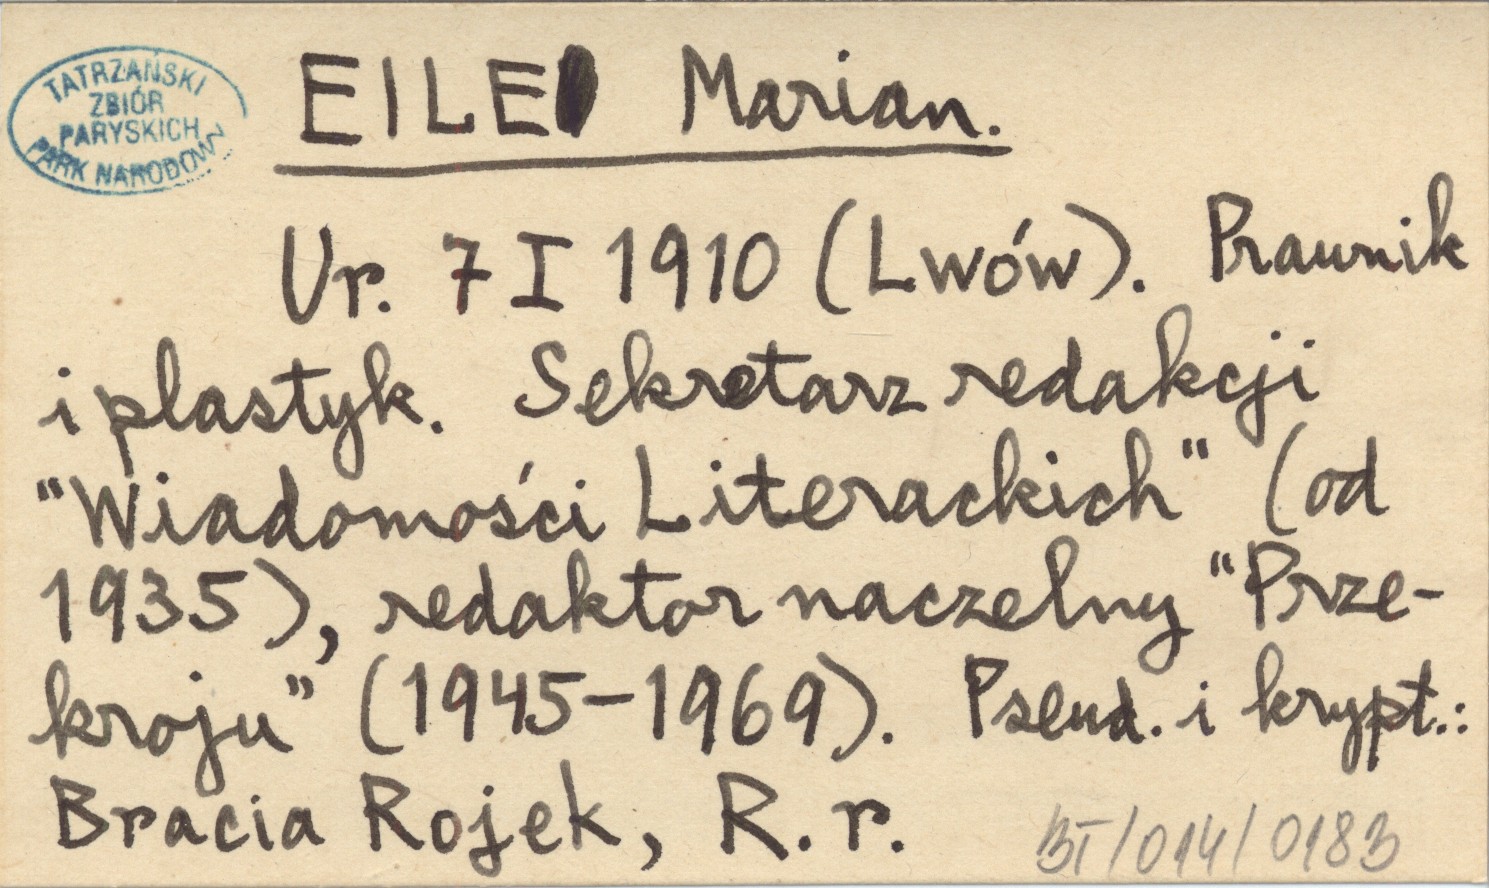 TATRZAŃSKI
ZBIÓR
PARYSKICH
PARK NARODOWY
EILE Marian.
Ur. 7 I 1910 (Lwów). Prawnik
i plastyk. Sekretarz redakcji
"Wiadomości Literackich" (od
1935), redaktor naczelny "Prze-
kroju" (1945-1969). Pseud. i krypt.:
Bracia Rojek, R. r.
BT/014/0183